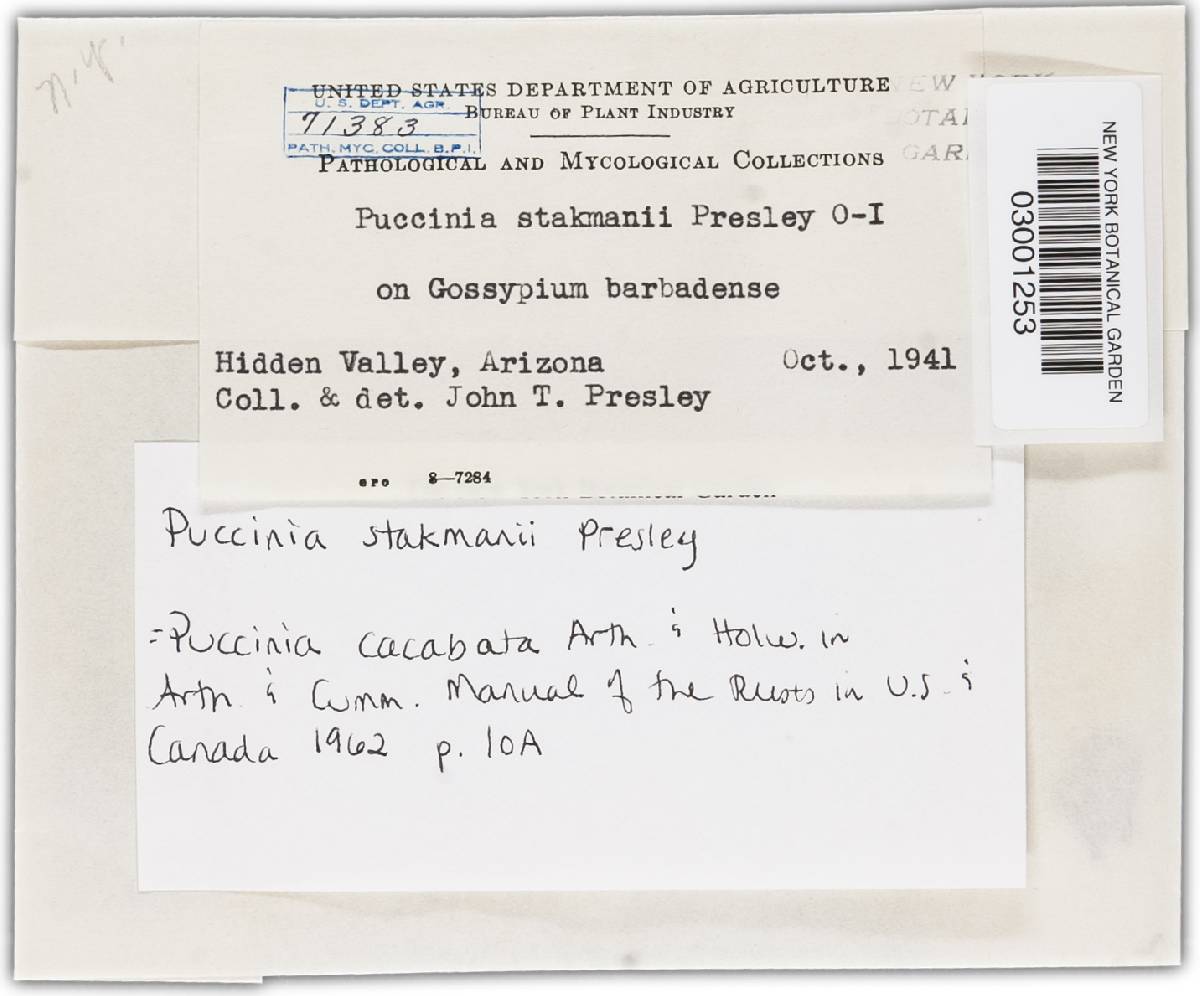 n.y.
UNITED STATES DEPARTMENT OF AGRICULTURE
BUREAU OF PLANT INDUSTRY
U. S. DEPT. AGR.
71383
PATH. MYC. COLL. B.P.I.
PATHOLOGICAL AND MYCOLOGICAL COLLECTIONS
Puccinia stakmanii Presley O-I
on Gossypium barbadense
Hidden Valley, Arizona Oct., 1941
Coll. & det. John T. Presley
GPO 8—7284
NEW YORK BOTANICAL GARDEN
03001253
Puccinia stakmanii Presley
=Puccinia cacabata Arth & Holw. in
Arth & Cumm. Manual of the Rusts in U.S. &
Canada 1962 p. 10A